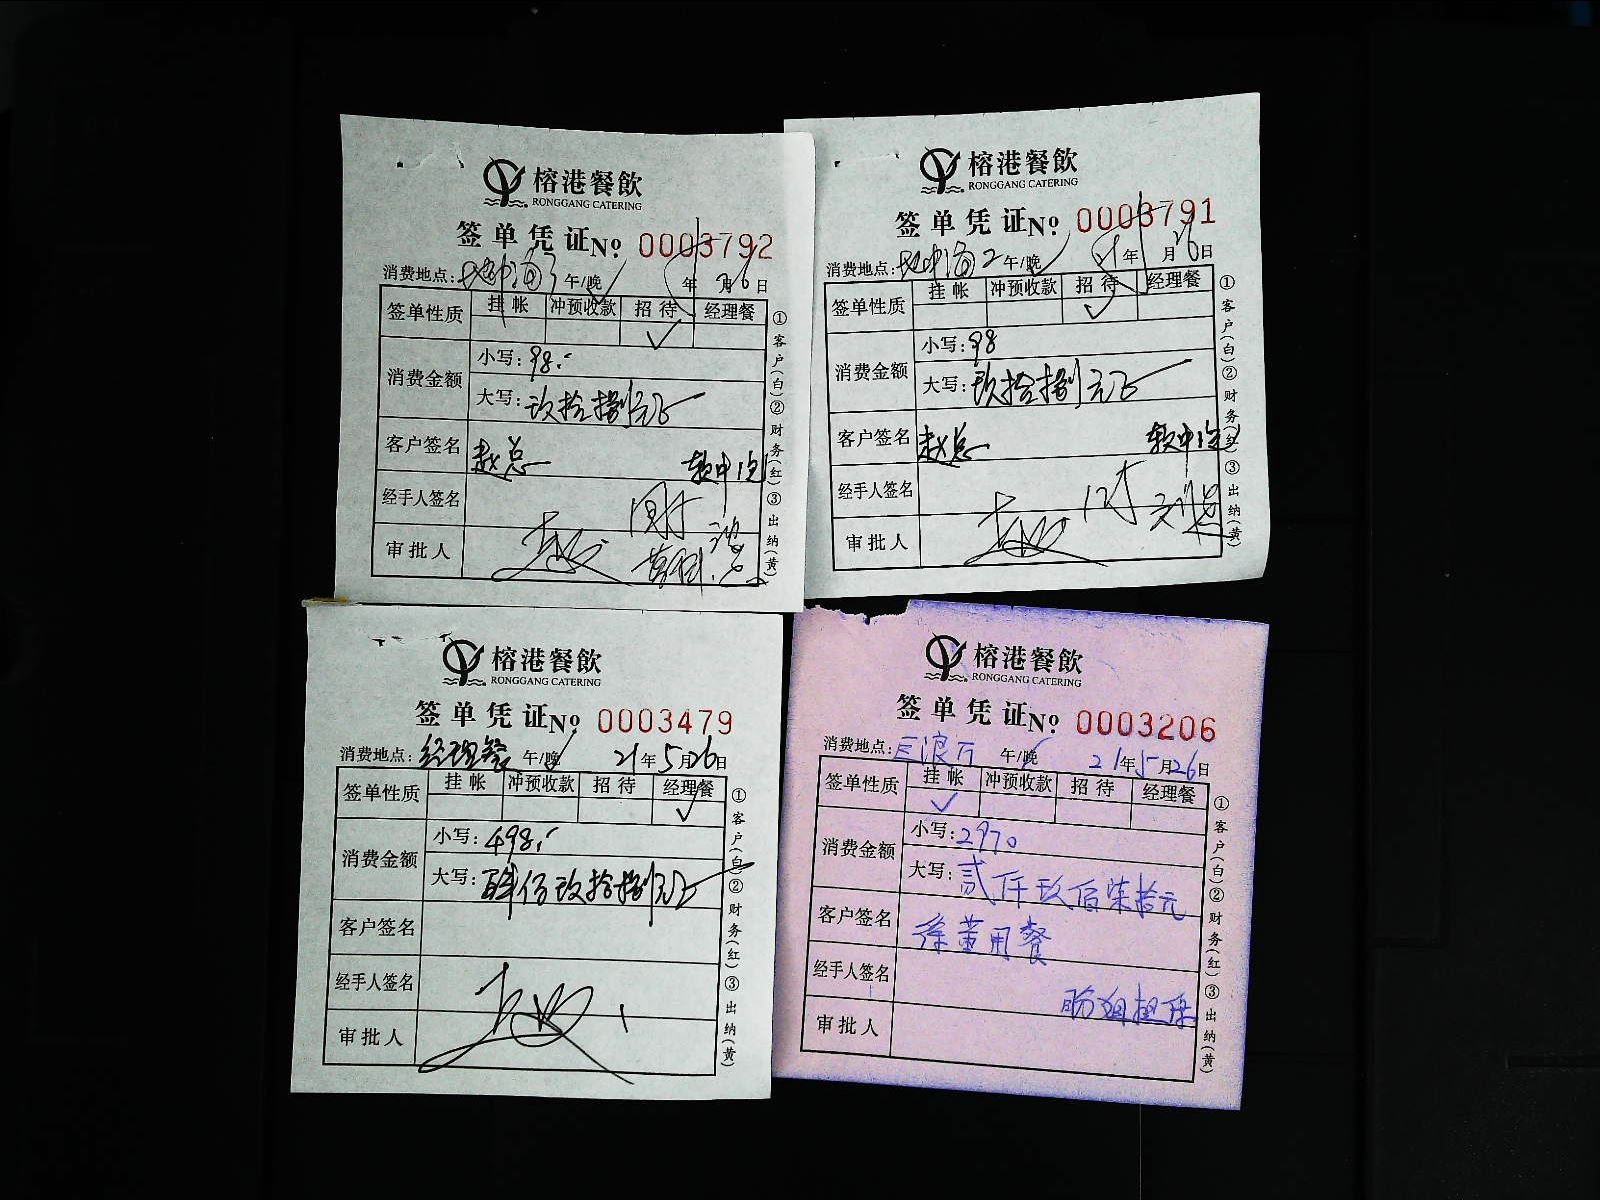 榕港餐飲
RONGGANG CATERING
签单凭证No 0003792
消费地点: 地中海3 午/晚 年 月26日
签单性质 挂帐 冲预收款 招待 经理餐
✓
消费金额 小写: 98.
大写: 玖拾捌元正
客户签名 赵总 软中1包
经手人签名
审批人
①客户(白)②财务(红)③出纳(黄)
榕港餐飲
RONGGANG CATERING
签单凭证No 0003791
消费地点: 地中海2 午/晚 21年 月26日
签单性质 挂帐 冲预收款 招待 经理餐
✓
消费金额 小写: 98
大写: 玖拾捌元正
客户签名 赵总 软中1包
经手人签名
审批人
①客户(白)②财务(红)③出纳(黄)
榕港餐飲
RONGGANG CATERING
签单凭证No 0003479
消费地点: 经理餐 午/晚 21年5月26日
签单性质 挂帐 冲预收款 招待 经理餐
✓
消费金额 小写: 498.
大写: 肆佰玖拾捌元正
客户签名
经手人签名
审批人
①客户(白)②财务(红)③出纳(黄)
榕港餐飲
RONGGANG CATERING
签单凭证No 0003206
消费地点: 午/晚 21年5月26日
签单性质 挂帐 冲预收款 招待 经理餐
✓
消费金额 小写: 2970
大写: 贰仟玖佰柒拾元
客户签名 徐董用餐
经手人签名
审批人
①客户(白)②财务(红)③出纳(黄)